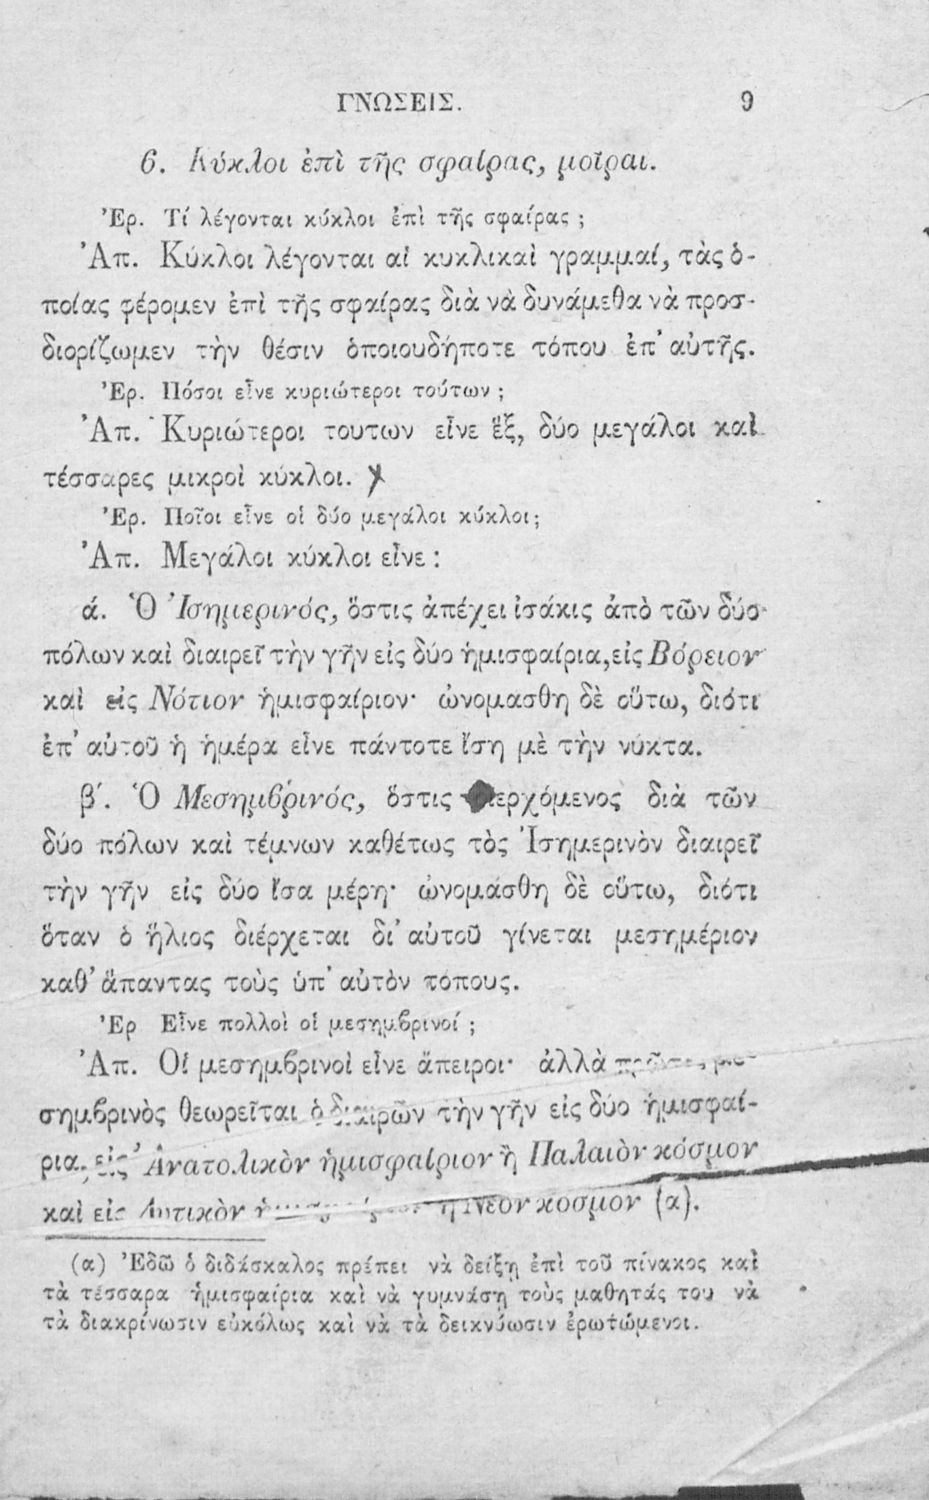 ΓΝΩΣΕΙΣ. 9
6. Κύκλοι ἐπὶ τῆς σφαίρας, μοῖραι.
Ἐρ. Τί λέγονται κύκλοι ἐπὶ τῆς σφαίρας ;
Ἀπ. Κύκλοι λέγονται αἱ κυκλικαὶ γραμμαί, τὰς ὁ-
ποίας φέρομεν ἐπὶ τῆς σφαίρας διὰ νὰ δυνάμεθα νὰ προσ-
διορίζωμεν τὴν θέσιν ὁποιουδήποτε τόπου ἐπ' αὐτῆς.
Ἐρ. Πόσοι εἶνε κυριώτεροι τούτων ;
Ἀπ. Κυριώτεροι τουτων εἶνε ἕξ, δύο μεγάλοι καὶ
τέσσαρες μικροὶ κύκλοι.
Ἐρ. Ποῖοι εἶνε οἱ δύο μεγάλοι κύκλοι;
Ἀπ. Μεγάλοι κύκλοι εἶνε :
ά. Ὁ Ἰσημερινός, ὅστις ἀπέχει ἰσάκις ἀπὸ τῶν δύο
πόλων καὶ διαιρεῖ τὴν γῆν εἰς δύο ἡμισφαίρια,εἰς Βόρειον
καὶ εἰς Νότιον ἡμισφαίριον· ὠνομασθη δὲ οὕτω, διότι
ἐπ' αὐτοῦ ἡ ἡμέρα εἶνε πάντοτε ἴση μὲ τὴν νύκτα.
β΄. Ὁ Μεσημβρινός, ὅστις διερχόμενος διὰ τῶν
δύο πόλων καὶ τέμνων καθέτως τὸς Ἰσημερινὸν διαιρεῖ
τὴν γῆν εἰς δύο ἴσα μέρη· ὠνομάσθη δὲ οὕτω, διότι
ὅταν ὁ ἥλιος διέρχεται δι' αὐτοῦ γίνεται μεσημέριον
καθ' ἅπαντας τοὺς ὑπ' αὐτὸν τόπους.
Ἐρ Εἶνε πολλοὶ οἱ μεσημβρινοί ;
Ἀπ. Οἱ μεσημβρινοὶ εἶνε ἄπειροι· ἀλλὰ
σημβρινὸς θεωρεῖται ὁ διαιρῶν τὴν γῆν εἰς δύο ἡμισφαί-
ρια, εἰς Ἀνατολικὸν ἡμισφαίριον ἢ Παλαιὸν κόσμον
καὶ εἰς Δυτικὸν ἢ Νέον κόσμον (α).
(α) Ἐδῶ ὁ διδάσκαλος πρέπει νὰ δείξῃ ἐπὶ τοῦ πίνακος καὶ
τὰ τέσσαρα ἡμισφαίρια καὶ νὰ γυμνάσῃ τοὺς μαθητάς του νὰ
τὰ διακρίνωσιν εὐκόλως καὶ νὰ τὰ δεικνύωσιν ἐρωτώμενοι.